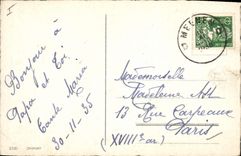 Bonjour à
Papa et Toi
Tante Maria
30-11-35
MELNEN
Mademoiselle
Madeleine Alt
13 Rue Carpeaux
Paris
(XVIII ar)